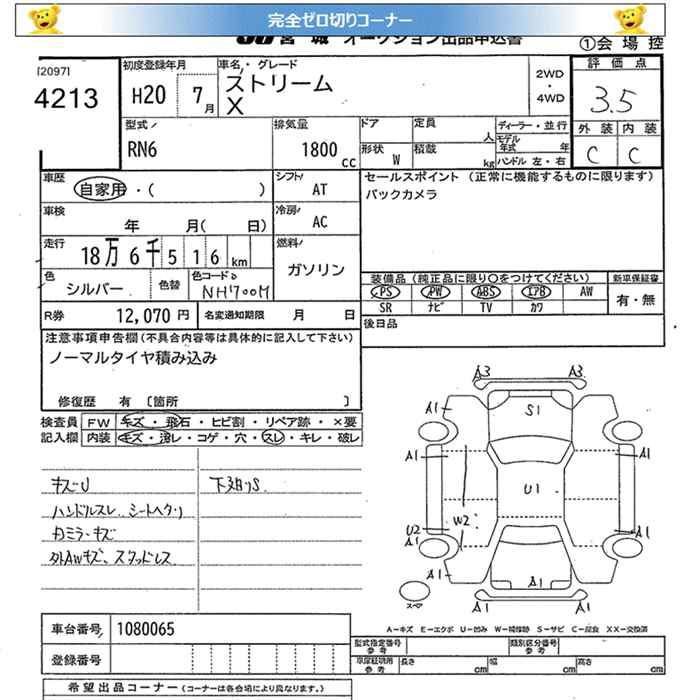 完全ゼロ切りコーナー
宮城 オークション出品申込書
①会場控
[2097]
4213
初度登録年月
H20 7月
車名・グレード
ストリーム
X
2WD
・
4WD
評価点
3.5
外装 内装
C C
型式
RN6
排気量
1800cc
ドア
定員 人
ディーラー・並行
モデル年式 年
形状 W
積載 kg
ハンドル 左・右
車歴
自家用・( )
シフト
AT
セールスポイント (正常に機能するものに限ります)
バックカメラ
車検
年 月( 日)
冷房
AC
走行
18万6千516km
燃料
ガソリン
色
シルバー
色替
色コード
NH700M
装備品(純正品に限り○をつけてください)
PS PW ABS エアB AW
SR ナビ TV カワ
新車保証書
有・無
R券
12,070円
名変通知期限 月 日
後日品
注意事項申告欄(不具合内容等は具体的に記入して下さい)
ノーマルタイヤ積み込み
修復歴 有 〔箇所 〕
検査員記入欄
FW キズ・飛石・ヒビ割・リペア跡・×要
内装 キズ・汚レ・コゲ・穴・スレ・キレ・破レ
キズU
ハンドルスレ シートヘタリ
カミラーキズ
外AWキズ、スタッドレス
下廻りS
A3 A3
A1 S1
A1 A1
U1
W2
U2
A1 A1
A1 A1
A1 A1
スペア
A−キズ E−エクボ U−凹み W−補修跡 S−サビ C−腐食 XX−交換済
車台番号
1080065
登録番号
型式指定番号
参考
類別区分番号
参考
車庫証明用
参考
長さ cm 幅 cm 高さ cm
希望出品コーナー(コーナーは各会場により異なります。)